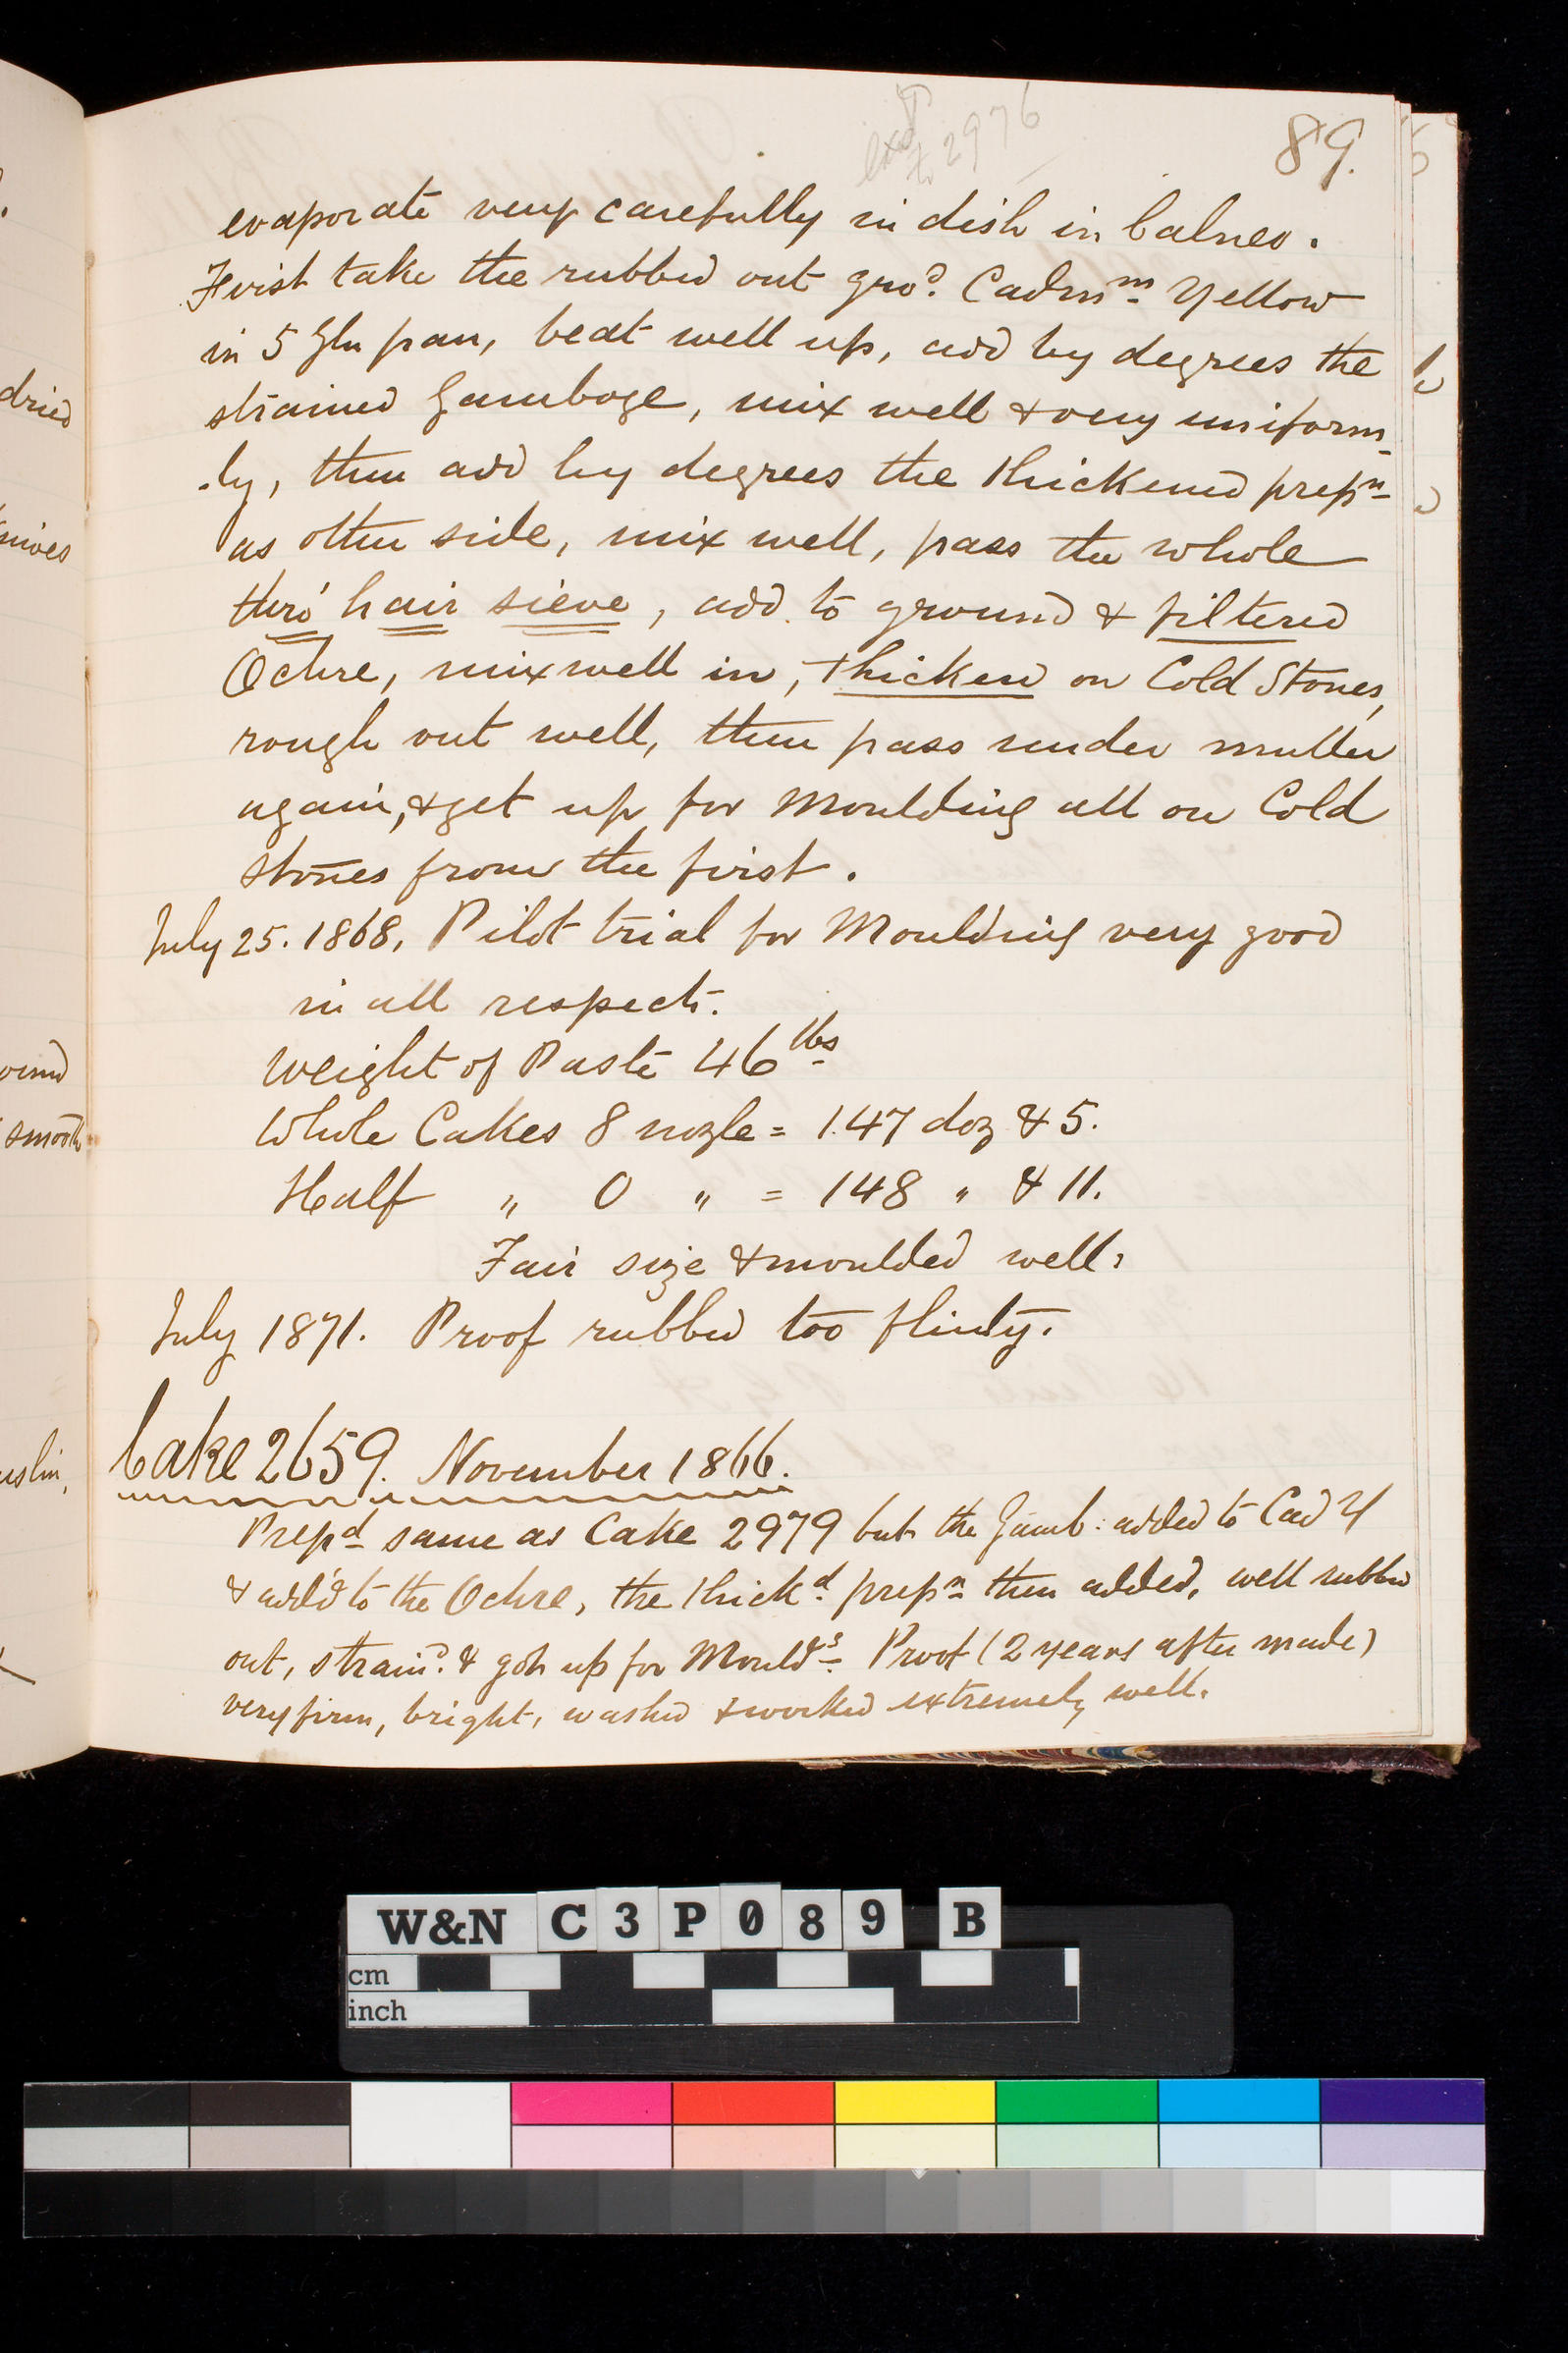 to 2976
89.
evaporate very carefully in dish in balneo.
First take the rubbed out gro^d. Cadm^m Yellow
in 5 Gln pan, beat well up, add by degrees the
strained Gamboge, mix well & very uniform
.ly, then add by degrees the thickened prep^n
as other side, mix well, pass the whole
thro' hair sieve, add to ground & filtered
Ochre, mix well in, thicken on Cold Stones,
rough out well, then pass under muller
again, & get up for Moulding all on Cold
Stones from the first.
July 25. 1868, Pilot trial for Moulding very good
in all respects.
Weight of Paste 46 lbs
Whole Cakes 8 nozle = 147 doz & 5.
Half " 0 " = 148 " & 11.
Fair size & moulded well.
July 1871. Proof rubbed too flinty.
Cake 2659. November 1866.
Prep^d same as Cake 2979 but the Gamb: added to Cad Y
& add'd to the Ochre, the thick^d. prep^n then added, well rubbed
out, strain^d. & got up for Mould^g. Proof (2 years after made)
very firm, bright, washed & worked extremely well.
dried
ound
smooth
uslin,
W&N C3P089 B
cm
inch